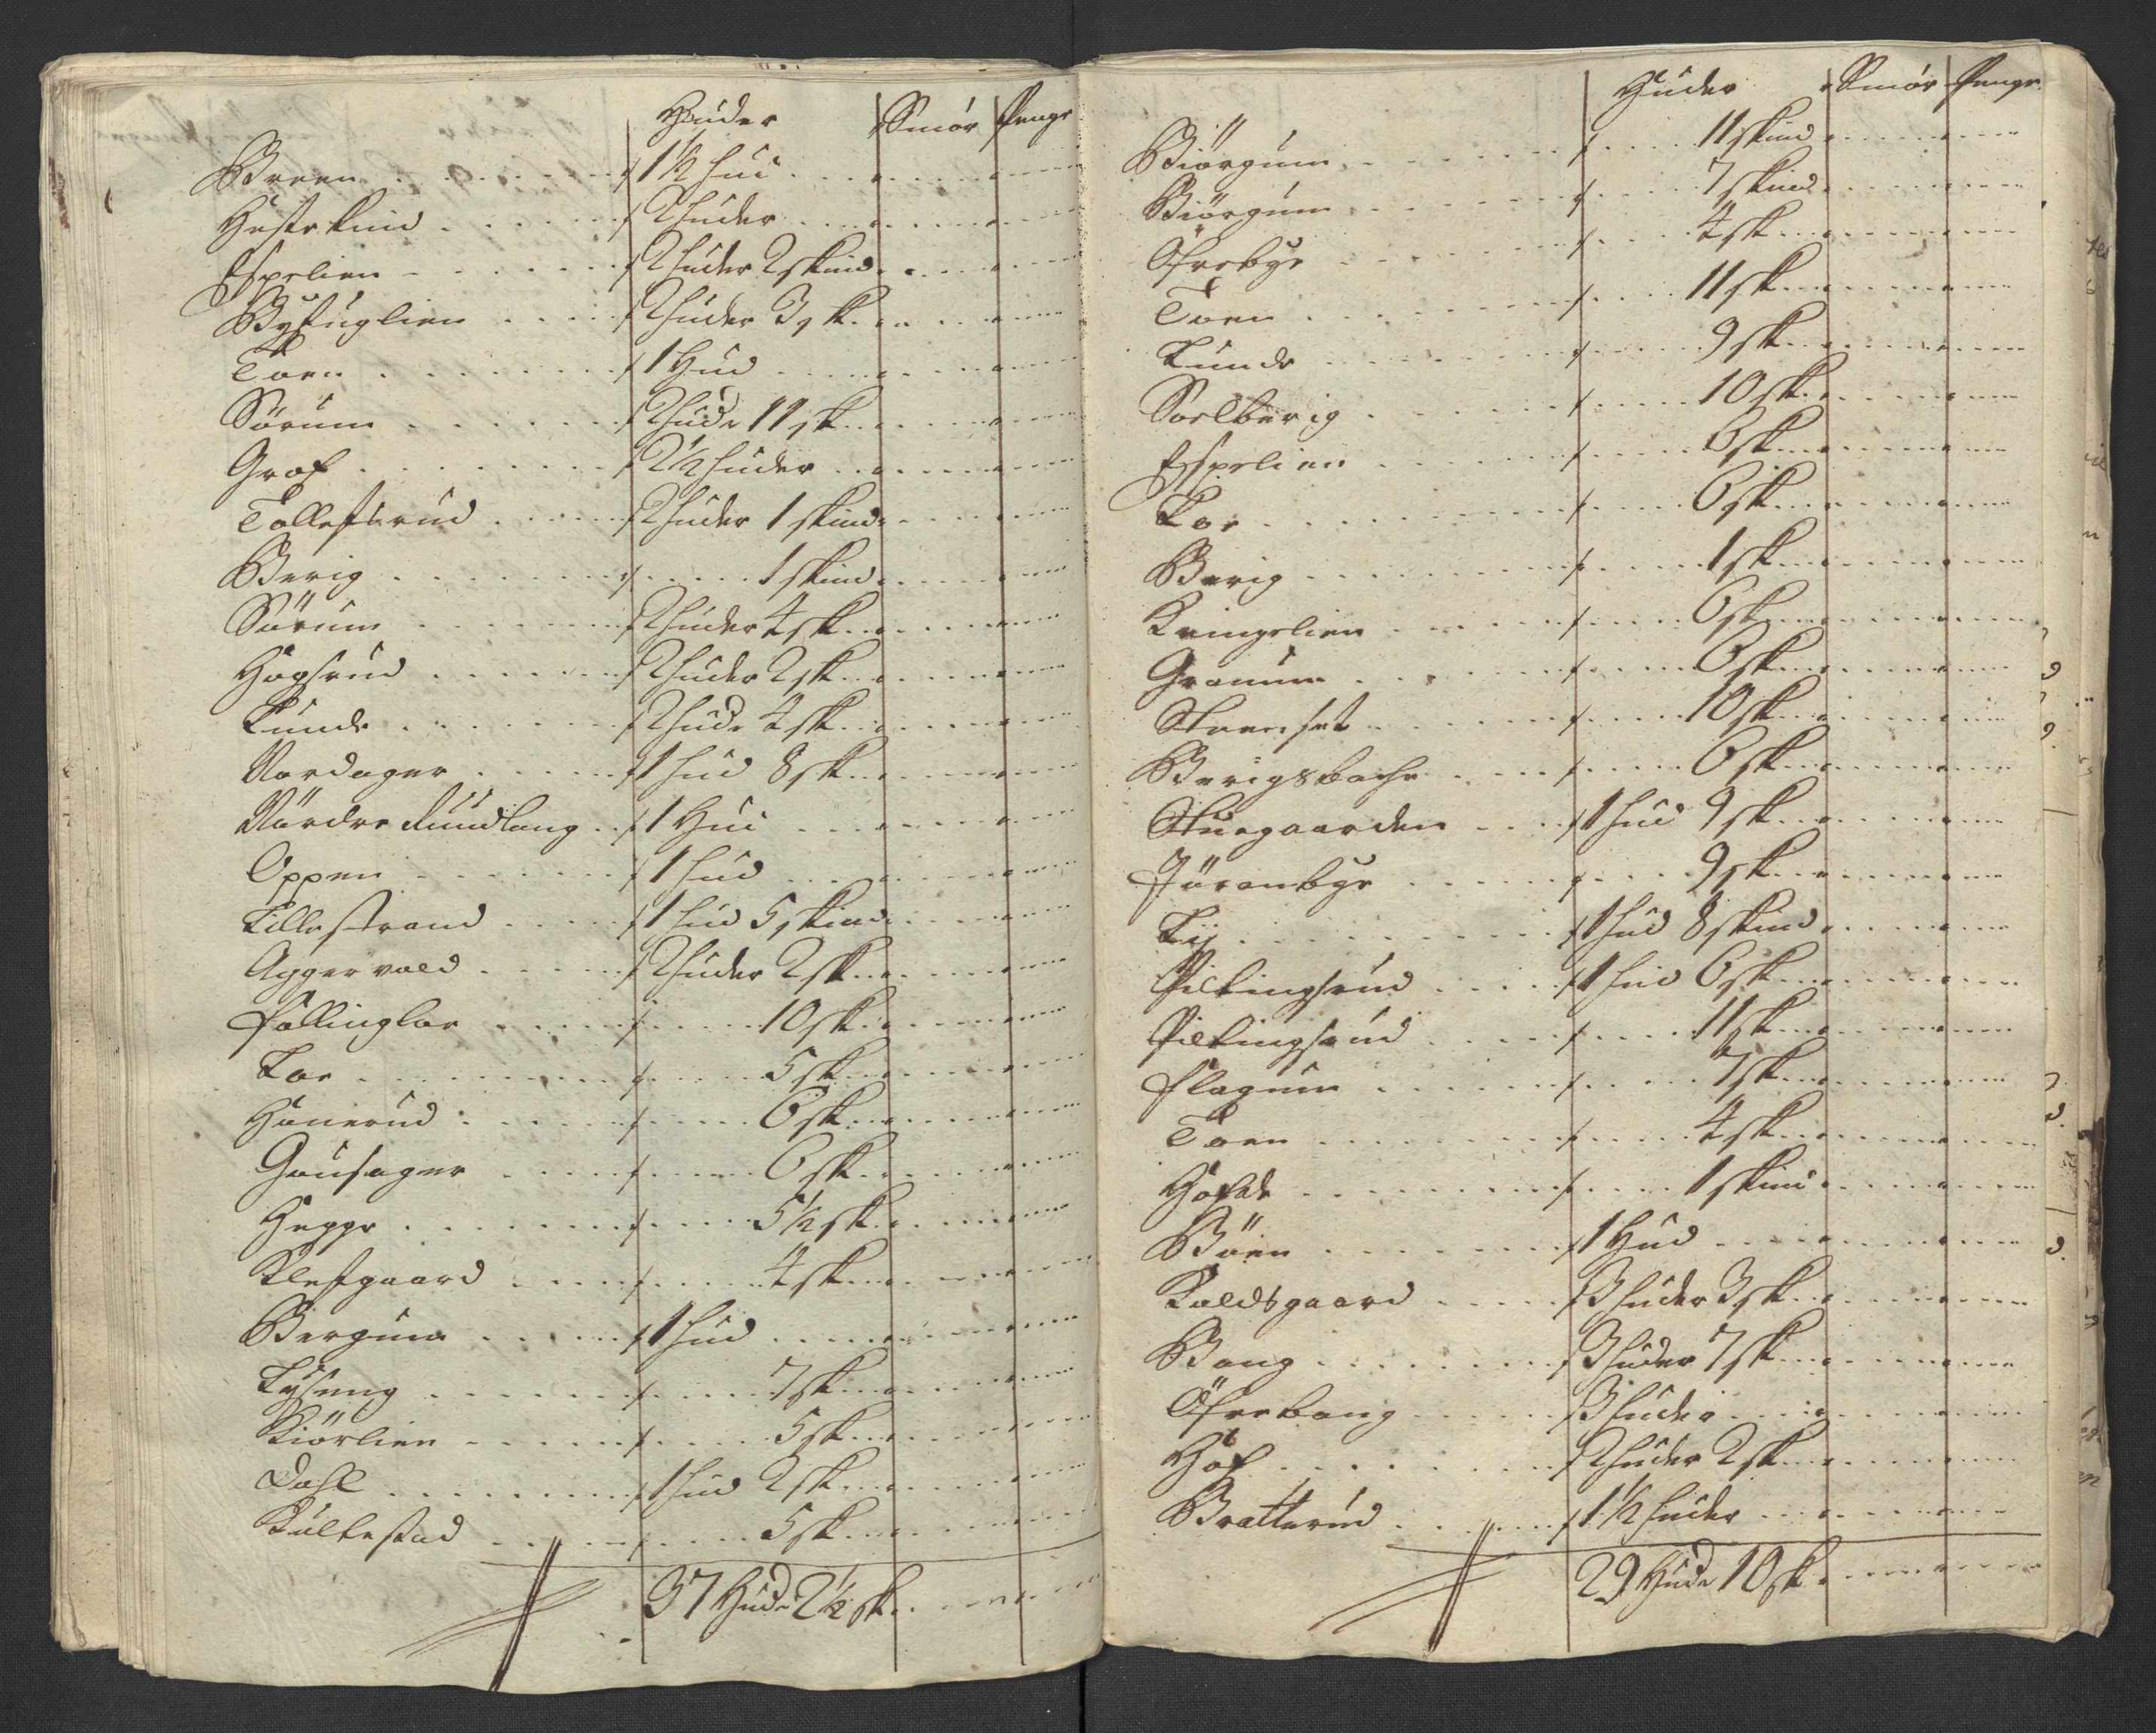 Huder Smör Penge
Breen 1½ hud
Hestekind 2 huder
Espelien 2 huder 2 skind
Byfuglien 2 huder 3 sk
Toen 1 Hud
Sörum 2 hude 11 sk
Grof 2½ huder
Tollefsrud 2 huder 1 skind
Berig 1 skind
Sörum 2 huder 4 sk
Högsrud 2 huder 2 sk
Lunde 2 hude 4 sk
Nordager 1 hud 8 sk
Nördre Rundlang 1 Hud
Oppen 1 hud
Lillestrand 1 hud 5 skind
Aggervald 2 huder 2 sk
Föllingloe 10 sk
Loe 5 sk
Hönerud 6 sk
Gausager 6 sk
Hegge 5½ sk
Klefgaard 4 sk
Bergum 1 hud
Lyseng 7 sk
Kiörlien 5 sk
Dahl 1 hud 2 sk
Bültestad 5 sk
37 Hude 2½ sk
Huder Smör Penge
Biörgum 11 skind
Biörgum 7 skind
Ofrebye 4 sk
Toen 11 sk
Lunde 9 sk
Soelberig 10 sk
Espelien 6 sk
Loe 6 sk
Berig 1 sk
Ringelien 6 sk
Granum 6 sk
Steenset 10 sk
Berigsbache 6 sk
Stuegaarden 1 hud 9 sk
Jöranbye 9 sk
Lij 1 hud 8 skind
Piltingsrud 1 hud 6 sk
Piltingsrud 11 sk
Flagum 7 sk
Toen 4 sk
Hofde 1 skind
Böen 1 Hud
Koldsgaard 3 huder 3 sk
Bang 3 huder 7 sk
Öfrebang 3 huder
Hof 2 huder 2 sk
Bratterud 1½ huder
29 Hude 10 sk